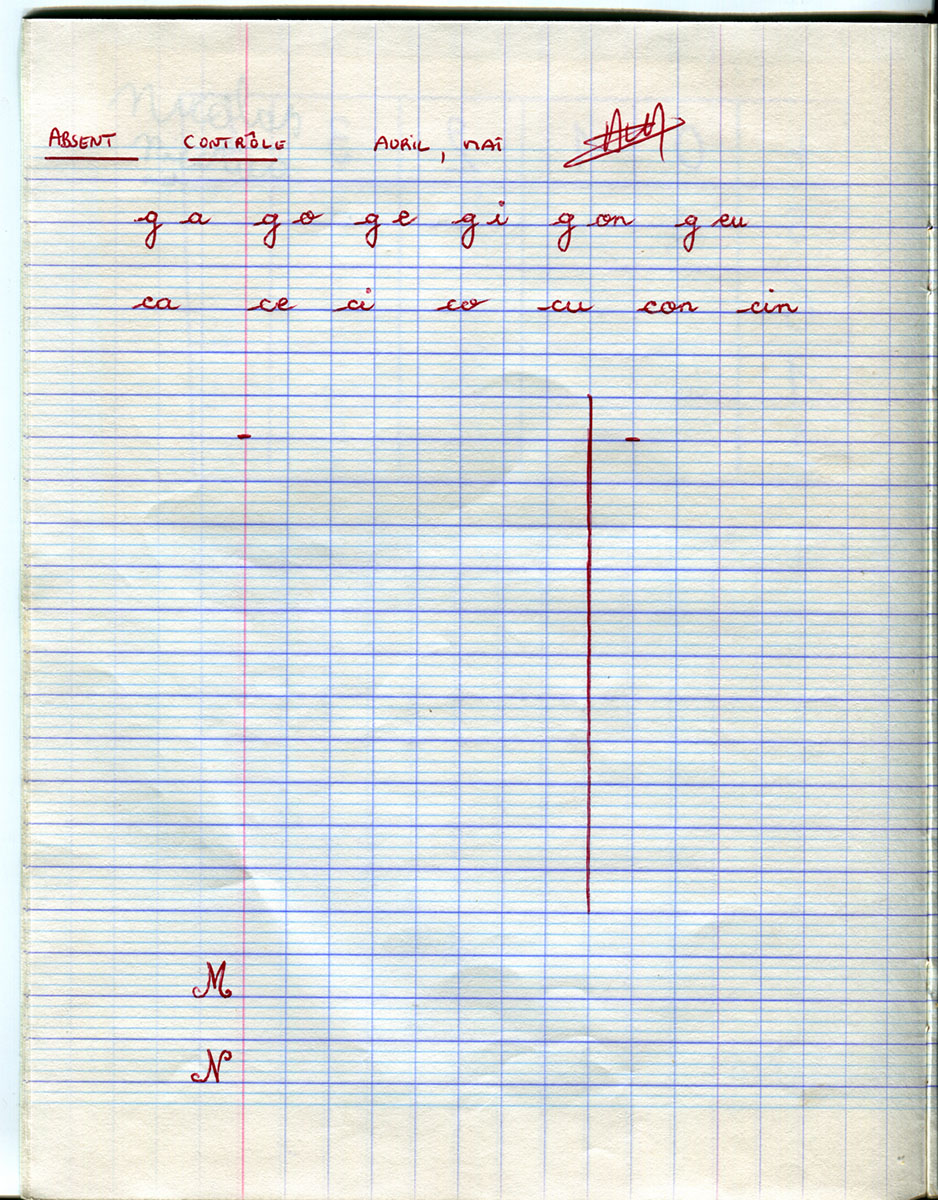 ABSENT CONTRÔLE AVRIL, MAÏ
ga go ge gi gon geu
ca ce ci co cu con cin
- -
M
N